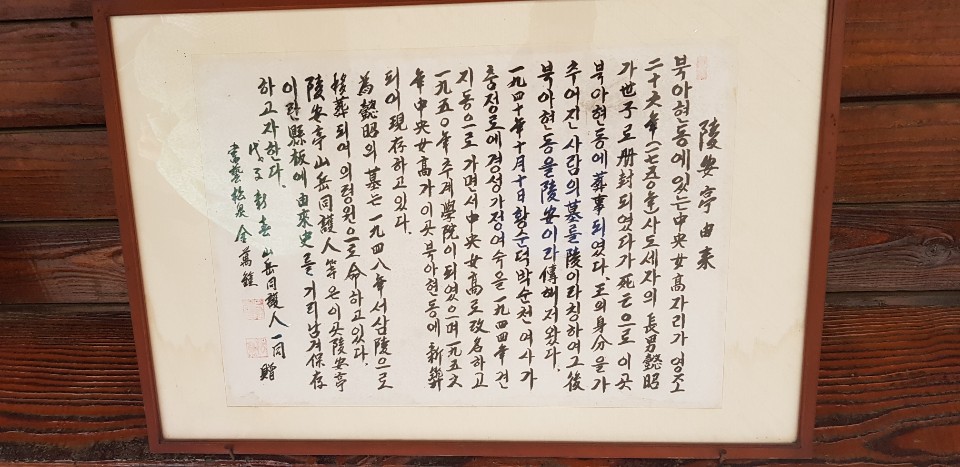 陵安亭由來
북아현동에있는中央女高자리가 영조
二十六年(一七五○年)사도세자의長男懿昭
가世子로册封되였다가死亡으로 이곳
북아현동에葬事되였다.王의身分을가
추어진사람의墓를陵이라칭하여그後
북아현동을陵安이라傳해져왔다.
一九四十年十月十日황순덕박순천여사가
충정로에경성가정여숙을一九四四年견
지동으로가면서中央女高로改名하고
一九五○年추계學院이되였으며一九五六
年中央女高가이곳북아현동에新築
되어現存하고있다.
為懿昭의墓은一九四八年서삼陵으로
移葬되여의령원으로命하고있다.
陵安亭山岳同護人等은이곳陵安亭
이란縣板에由來史를기리남겨保存
하고자한다.
戊子新春 山岳同護人一同 贈
書藝 金萬